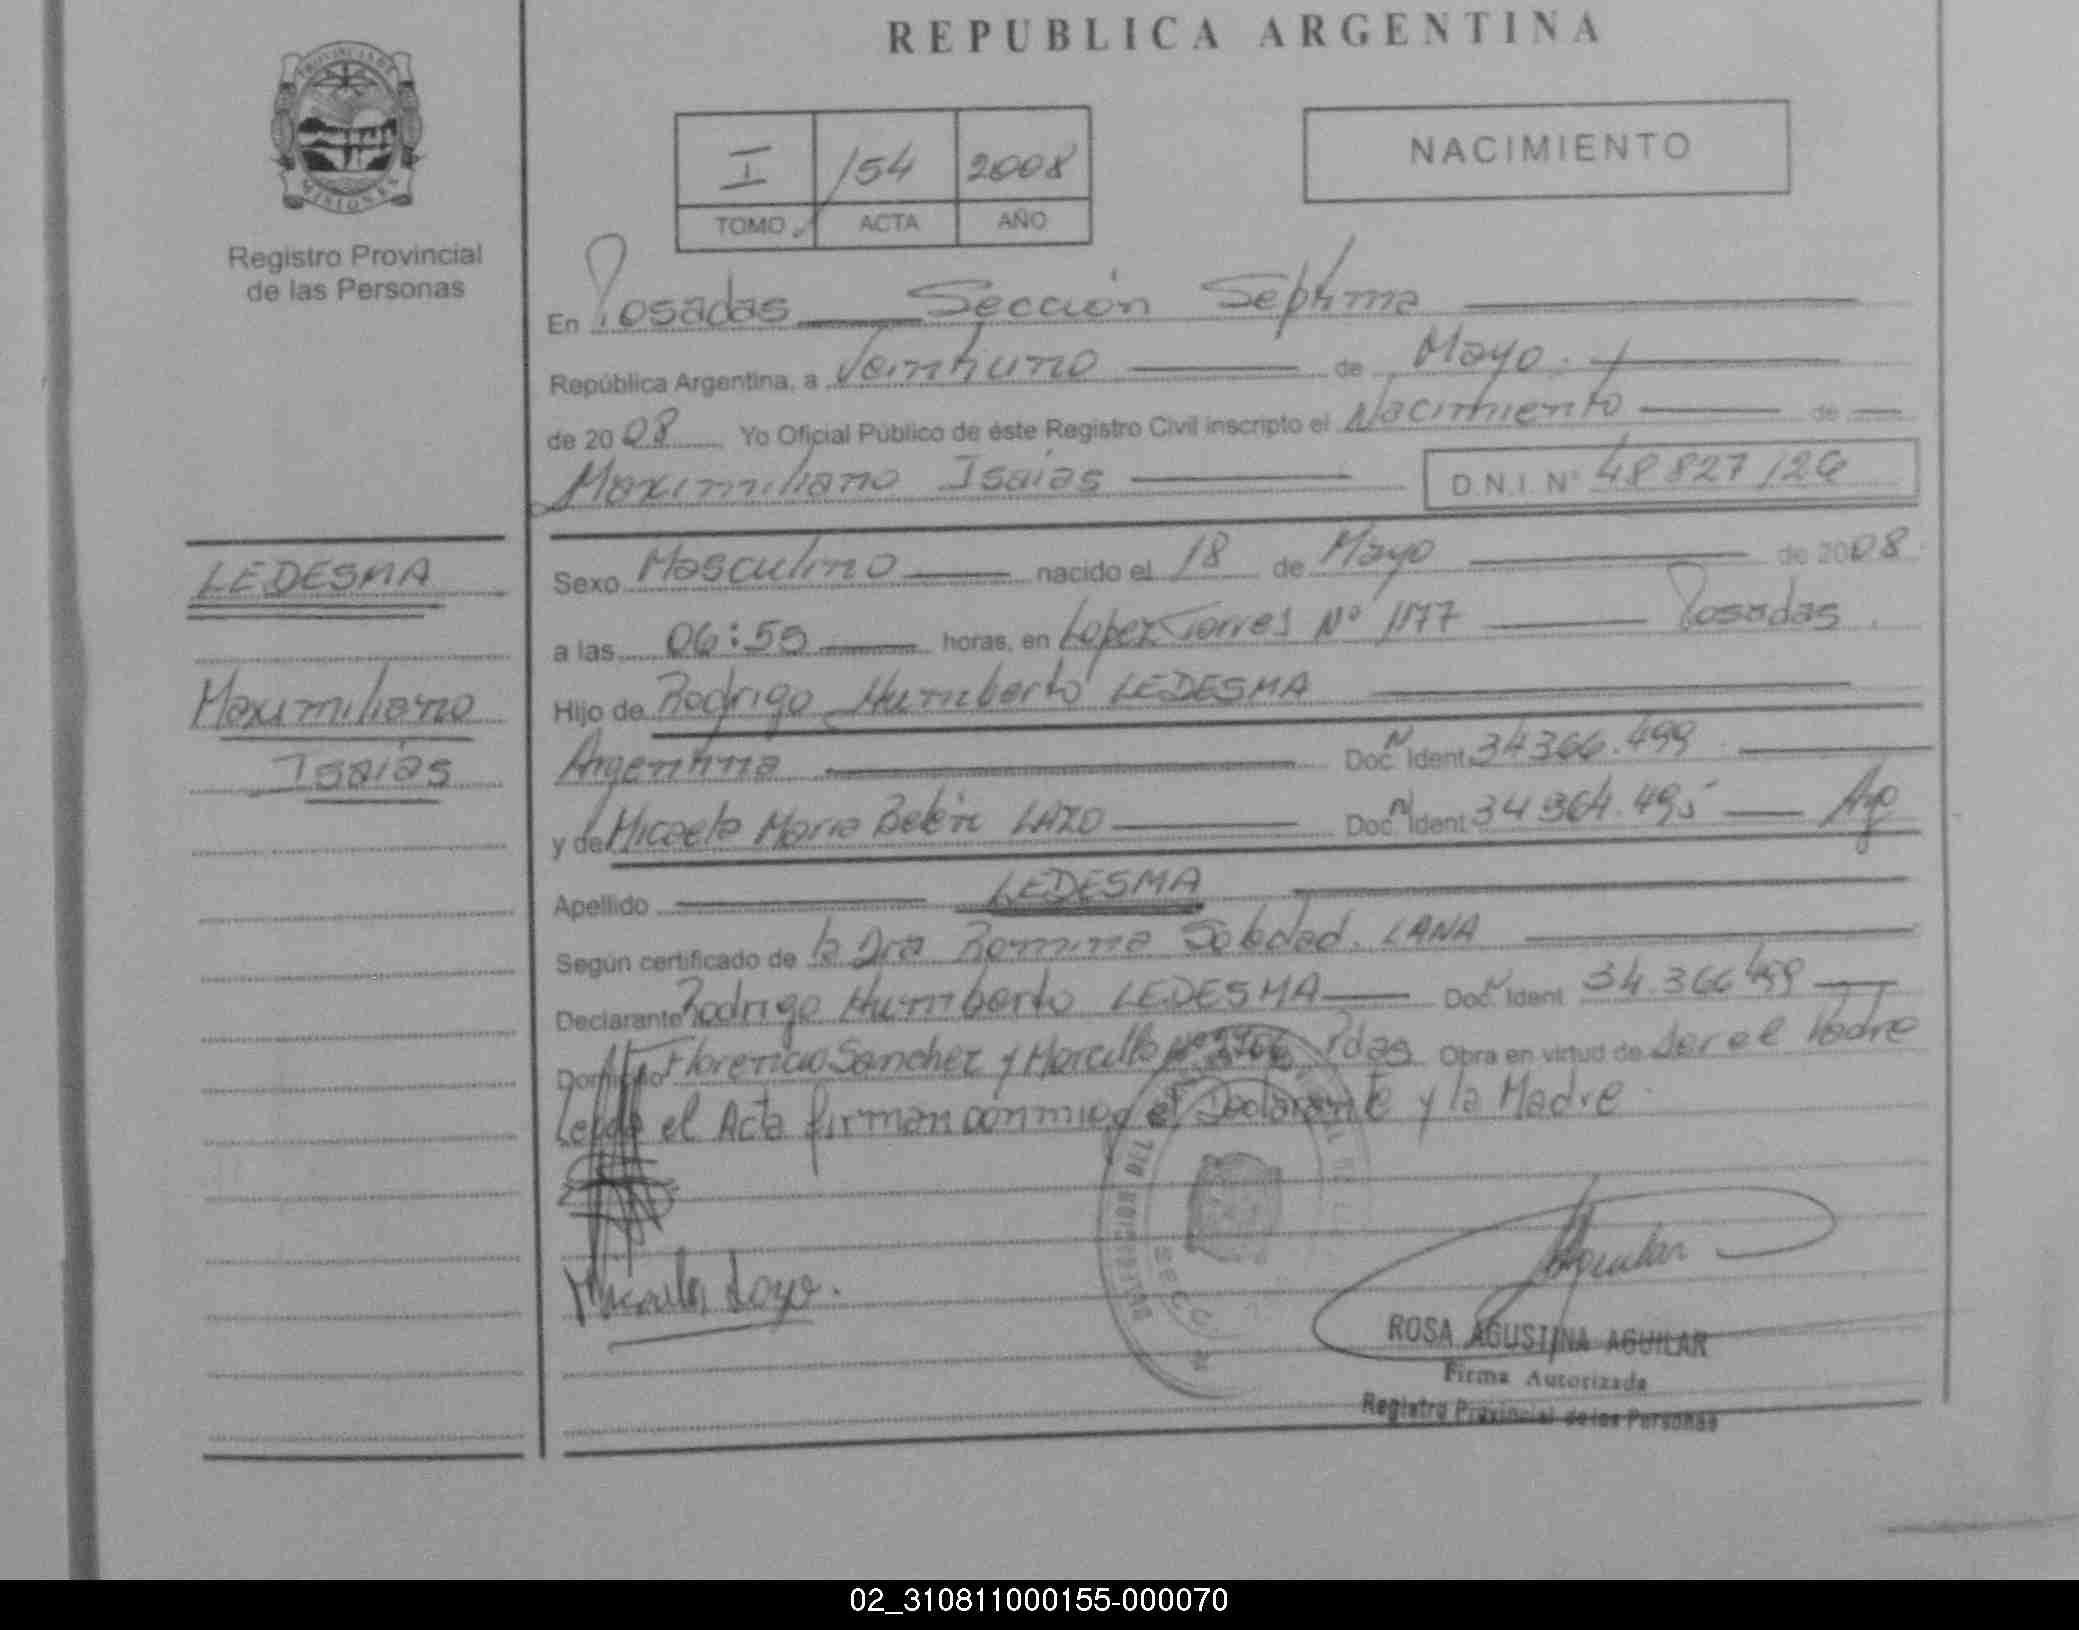 REPUBLICA ARGENTINA
PROVINCIA DE
MISIONES
Registro Provincial
de las Personas
I /54 2008
TOMO ACTA AÑO
NACIMIENTO
En Posadas Sección Septima
República Argentina, a Veintiuno de Mayo
de 2008 Yo Oficial Público de éste Registro Civil inscripto el Nacimiento de
Maximiliano Isaias D.N.I. Nº 48 827 126
LEDESMA
Maximiliano
Isaias
Sexo Masculino nacido el 18 de Mayo de 2008
a las 06:55 horas, en Lopez Torres Nº 1177 Posadas
Hijo de Rodrigo Humberto LEDESMA
Argentina Doc. Ident. 34366.499
y de Micaela Maria Belén Doc. Ident 34 364.495
Apellido LEDESMA
Según certificado de la Dra Romina Soledad LANA
Declarante Rodrigo Humberto LEDESMA Doc. Ident 34.366 499
Florencio Sanchez y Pdas Obra en virtud de ser el Padre
Leida el Acta firman conmigo el Declarante y la Madre
SECC.
ROSA AGUSTINA AGUILAR
Firma Autorizada
Registro Provincial de las Personas
02_310811000155-000070